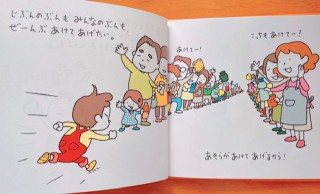 じぶんのぶんも みんなのぶんも、
ぜーんぶ あけてあげたい。
あけてー！
こっちも あけてー！
あそらが あけて あげるから！